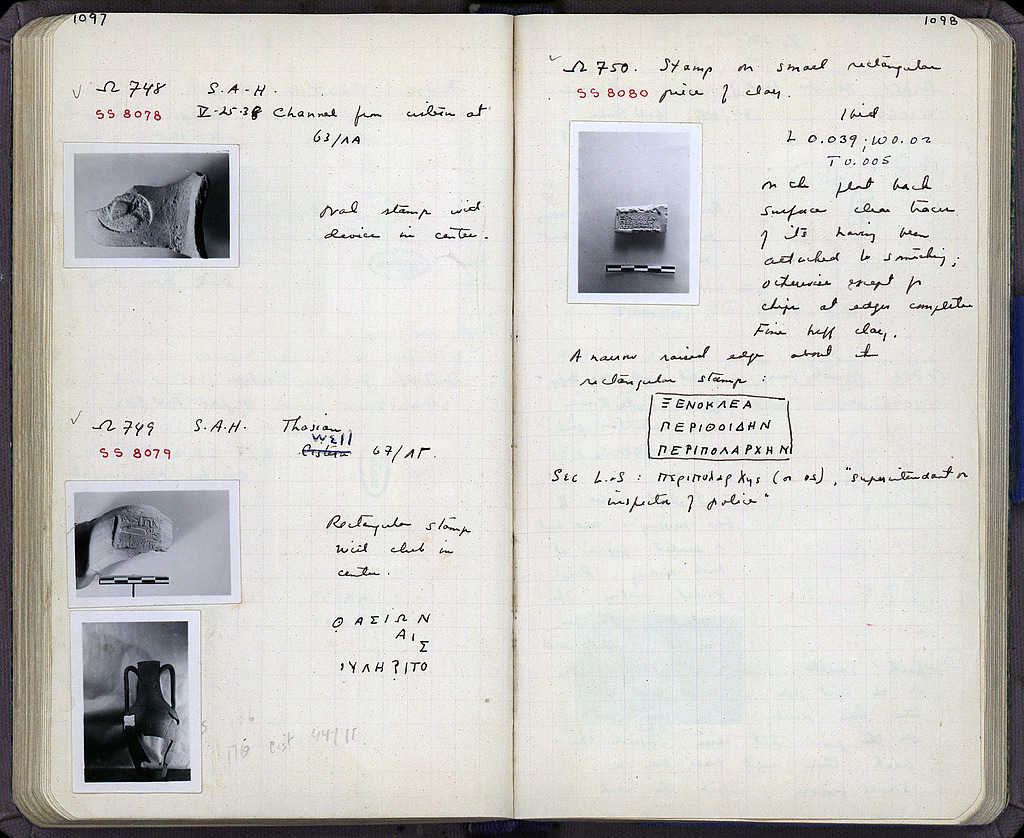 1097
Ω 748 S.A.H.
SS 8078 IV-25-38 Channel from cistern at
63/ΛΑ
Oval stamp with
device in center.
Ω 749 S.A.H. Thasian
WEll
SS 8079 Cistern 67/ΛΓ.
Rectangular stamp
with club in
center.
ΘΑΣΙΩΝ
ΑΙ
Σ
ΥΛΗ?ΙΤΟ
cist 44/
1098
Ω 750. Stamp on small rectangular
SS 8080 piece of clay.
Ibid
L 0.039; W 0.02
T 0.005
On the flat back
surface clear traces
of its having been
attached to something;
otherwise except for
chips at edges complete.
Fine buff clay.
A narrow raised edge about the
rectangular stamp:
ΞΕΝΟΚΛΕΑ
ΠΕΡΙΘΟΙΔΗΝ
ΠΕΡΙΠΟΛΑΡΧΗΝ
See L.&S: περιπολαρχης (or os), "superintendant or
inspector of police"